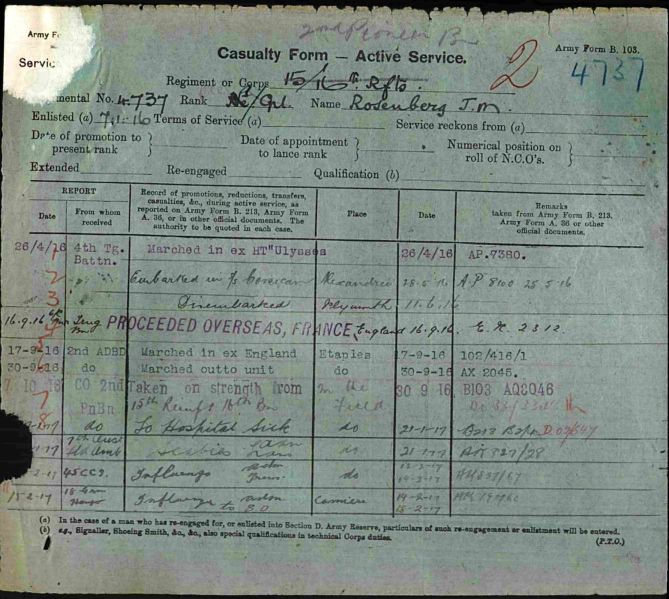 2nd Pioneer Bn
Army F
Army Form B. 103.
Casualty Form — Active Service.
Servic
2
4737
Regiment or Corps 15/16th Rfts.
mental No. 4737 Rank Name Rosenberg J.M.
Enlisted (a) 7.1.16 Terms of Service (a) Service reckons from (a)
Date of promotion to present rank
Date of appointment to lance rank
Numerical position on roll of N.C.O's.
Extended Re-engaged Qualification (b)
REPORT
Date
From whom received
Record of promotions, reductions, transfers, casualties, &c., during active service, as reported on Army Form B. 213, Army Form A. 36, or in other official documents. The authority to be quoted in each case.
Place
Date
Remarks taken from Army Form B. 213, Army Form A. 36 or other official documents.
26/4/16 4th Tg. Battn. Marched in ex HT"Ulysses 26/4/16 AP.7380.
Embarked Corsican Alexandria 28.5.16 AP 8100 25 5 16
Disembarked Plymouth 11.6.16
16.9.16 PROCEEDED OVERSEAS, FRANCE, England 16.9.16. 2312.
17-9-16 2nd ADBD Marched in ex England Etaples 17-9-16 102/416/1
30-9-16 do Marched outto unit do 30-9-16 AX 2045.
7 10 16 CO 2nd PnBn Taken on strength from 15th Reinfs 16th Bn In the Field 30 9 16 B103 AQ8046
do To Hospital Sick do 21-1-17 B213
Fld Amb Scabies
45CCS. Influenza do
15-2-17 Influenza to B.D Camiers 14-2-17 15-2-17
1
2
3
5
7
8
(a) In the case of a man who has re-engaged for, or enlisted into Section D. Army Reserve, particulars of such re-engagement or enlistment will be entered.
(b) e.g., Signaller, Shoeing Smith, &c., &c., also special qualifications in technical Corps duties.
(P.T.O.)